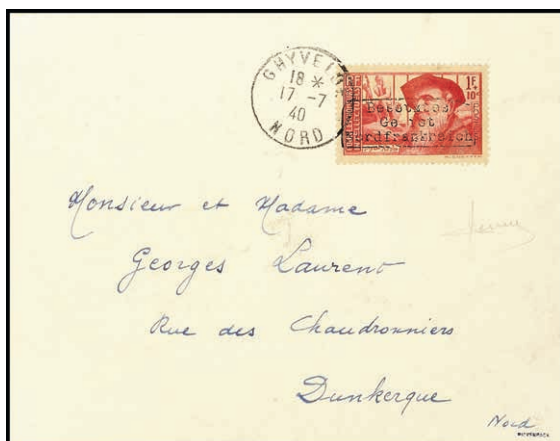 GHYVELDE
18 *
17 -7
40
NORD
1F
+10c
Besetztes
Gebiet
Nordfrankreich
Monsieur et Madame
Georges Laurent
Rue des Chaudronniers
Dunkerque
Nord